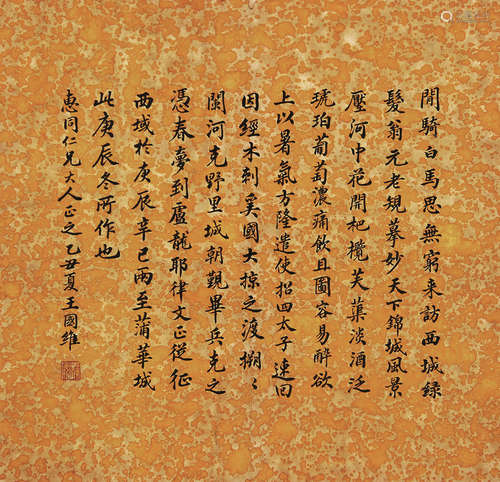 閒騎白馬思無窮来訪西城緑
髮翁元老規摹妙天下錦城風景
壓河中花開杷欖芙蕖淡酒泛
琥珀葡萄濃痛飲且圖容易醉欲
上以暑氣方隆遣使招四太子速回
因經木剌奚國大掠之渡搠々
闌河克野里城朝覲畢兵克之
憑春夢到盧龍耶律文正從征
西域於庚辰辛巳兩至蒲華城
此庚辰冬所作也
惠同仁兄大人正之乙丑夏王國維